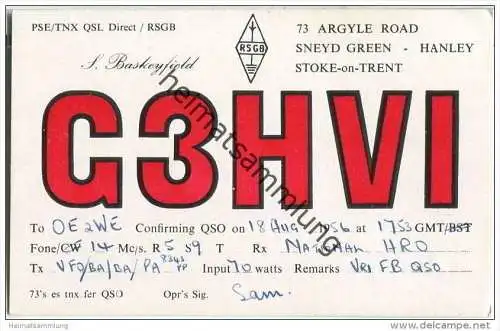 PSE/TNX QSL Direct / RSGB
73 ARGYLE ROAD
SNEYD GREEN - HANLEY
STOKE-on-TRENT
RSGB
S. Baskeyfield
G3HVI
heimatsammlung.de
To OE2WE Confirming QSO on 18 Aug 1956 at 1753 GMT/BST
Fone/CW 14 Mc/s. R 5 S 9 T Rx NATIONAL HRO
Tx VFO/BA/BA/PA Input 70 watts Remarks VRI FB QSO
73's es tnx fer QSO Opr's Sig. Sam.
Heimatsammlung